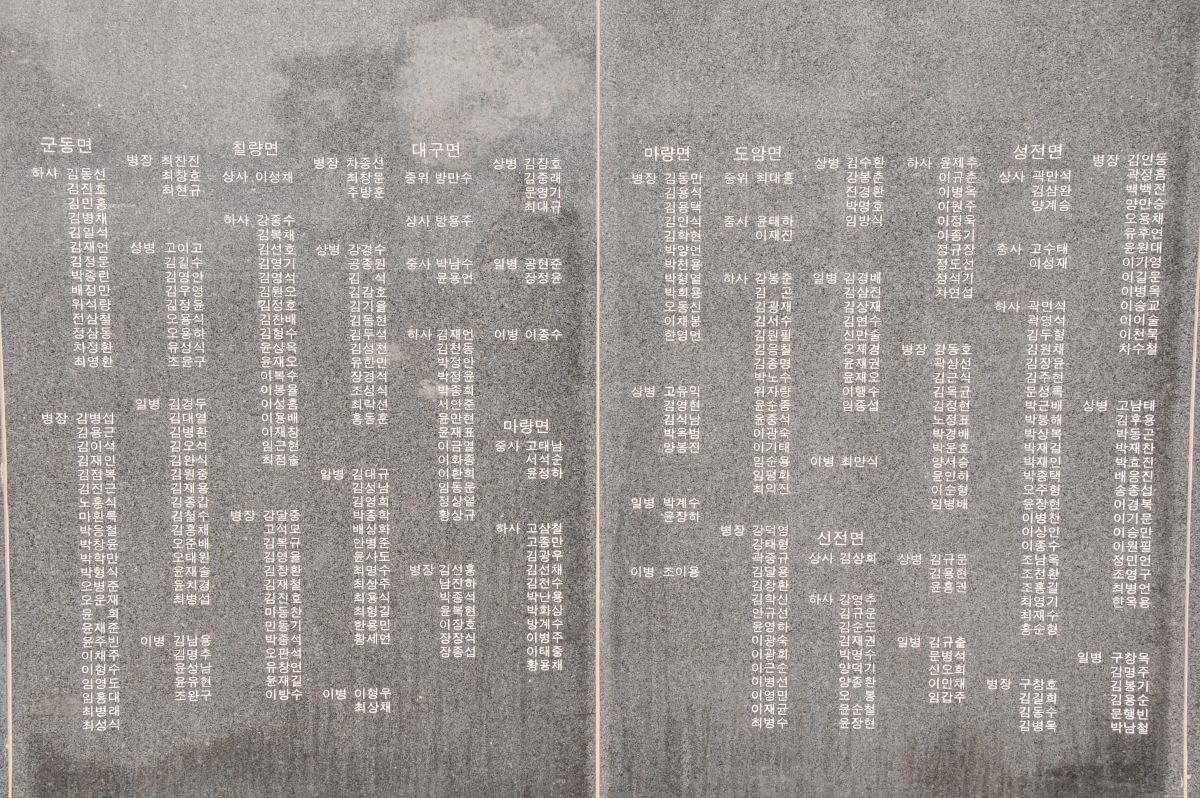 군동면
하사 김동선
김진호
김민홍
김병채
김일석
김재언
김정문
박종린
배정만
위석량
전삼철
정심동
차정환
최영환
병장 김병섭
김용근
김이석
김재인
김점복
김진근
노홍식
마환록
박응철
박창윤
박학만
박형식
오병준
오운재
윤 희
윤재준
윤주빈
이채주
이형수
임영도
임홍대
최병래
최성식
병장 최찬진
최창호
최현규
상병 고이고
김길수
김영안
김우영
김정윤
오용식
오용하
유성식
조윤구
일병 김경두
김대열
김병환
김오석
김완식
김원중
김재용
김종갑
김철수
김흥채
오준배
오태원
윤재술
윤치경
최병섭
이병 김남용
김명추
윤성남
윤유현
조완구
칠량면
상사 이성채
하사 강종수
김복채
김선호
김영기
김영석
김원오
김정호
김찬배
김형수
윤상옥
윤재오
이복수
이봉율
이성흠
이용배
이재창
임근현
최점술
병장 강달중
고석모
김복규
김영율
김장환
김재철
김진호
마동찬
민동기
박종석
오판석
유창언
윤재길
이방수
병장 차종선
최창문
주방훈
상병 강경수
공종원
김 석
김감호
김기율
김동현
김두석
김성진
유한민
장경석
조성식
최락선
홍동훈
일병 김대규
김성남
김영희
박종학
배상화
안병준
윤사도
최명수
최상주
최용식
최형길
한용민
황세연
이병 이형우
최상채
대구면
중위 방만수
상사 방용주
중사 박남수
윤용언
하사 김재언
김천동
박정안
박정윤
박종희
서안준
윤만현
윤재표
이금열
이화종
이환희
임동운
정상열
황상규
병장 김선홍
남진하
박종석
윤복현
이장호
장장식
장종섭
상병 김장호
김중래
문영기
최대규
일병 공현준
장정윤
이병 이종수
마량면
중사 고태남
서석순
윤정하
하사 고삼철
고종만
김광우
김선채
김천수
박난용
박화상
방계수
이병주
이태중
황용채
마량면
병장 김동만
김용식
김용택
김인식
김학현
박양언
박천용
박형열
박희용
오동신
이채봉
한영언
상병 고유익
김영현
김식남
박옥범
양봉진
일병 박계수
윤장하
이병 조이용
도암면
중위 최대홍
중사 윤태하
이재진
하사 강봉준
김 곤
김광재
김서수
김원필
김응칠
김종명
박노수
위자량
윤순종
윤중석
이광숙
이기태
임순용
임평화
최익진
병장 강덕영
강태형
곽중규
김달용
김창환
김학신
안규선
윤영하
이광숙
이광희
이근순
이병선
이영민
이재균
최병수
상병 김수환
강봉준
전경환
박명호
임방식
일병 김경배
김삼진
김상재
김연수
신만술
오재경
윤재권
윤재오
이행수
임종섭
이병 최만식
신전면
상사 김상희
하사 강영추
김규운
김순도
김재권
박영수
양덕기
양종환
오 봉
윤순철
윤장현
하사 윤제추
이규춘
이병옥
이원주
이정옥
이종기
정규장
정도선
정석기
차연섭
병장 강동호
곽삼선
김근식
김옥균
김정현
노정표
박경배
박운호
양서승
윤인하
이순형
임병배
상병 김규문
김용현
윤홍권
일병 김규출
문병석
신오희
이민재
임갑주
성전면
상사 곽만석
김삼완
양계승
중사 고수태
이성재
하사 곽민석
곽영석
김두형
김원채
김장윤
김주현
문성록
박근배
박봉해
박상복
박재길
박재인
박종택
오주형
윤장현
이병천
이상인
이종수
조남옥
조천환
조홍길
최영기
최재수
홍순형
병장 구창호
김길희
김동수
김병옥
병장 김인동
곽정흠
백백진
양만승
오용채
유후연
윤원대
이기영
이길문
이병옥
이승교
이이술
이천묵
차수철
상병 고남태
김후용
박동곤
박재찬
박효진
배응진
송종섭
이경복
이기문
이승만
이원필
정민언
조영구
최병언
한옥용
일병 구창옥
김명주
김봉기
김용순
문행빈
박남철